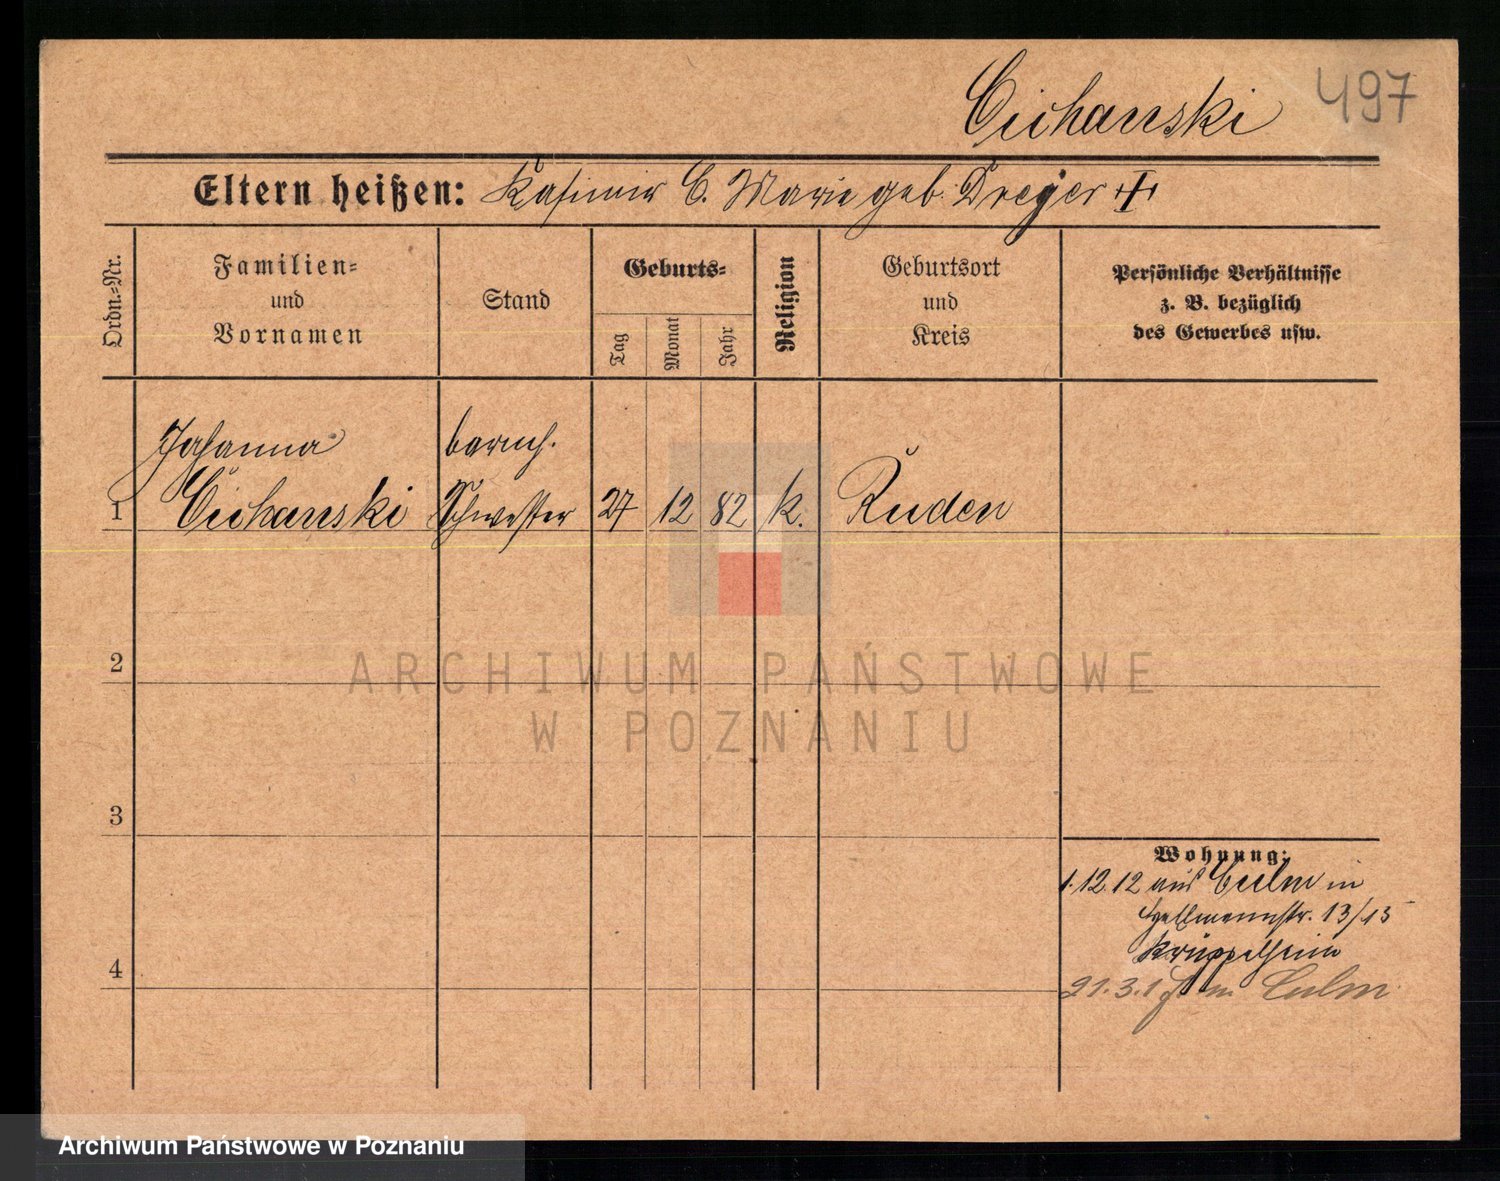 Cichanski 497
Eltern heißen: Kasimir C. Marie geb. Dreÿer +
Ordn.=Nr.
Familien=
und
Vornamen
Stand
Geburts=
Tag
Monat
Jahr
Religion
Geburtsort
und
Kreis
Persönliche Verhältnisse
z. B. bezüglich
des Gewerbes usw.
Johanna barmh.
1 Cichanski Schwester 27 12 82 k. Ruden
2
ARCHIWUM PAŃSTWOWE
W POZNANIU
3
Wohnung:
1.12.12 aus Culm in
13/15
Krüppelheim
4
Culm
Archiwum Państwowe w Poznaniu